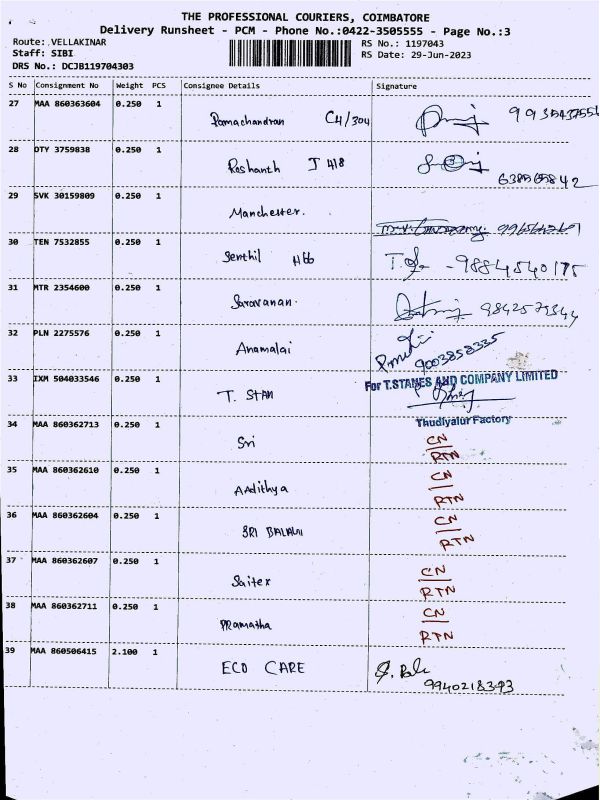 THE PROFESSIONAL COURIERS, COIMBATORE
Delivery Runsheet - PCM - Phone No.:0422-3505555 - Page No.:3
Route: VELLAKINAR
Staff: SIBI
DRS No.: DCJB119704303
RS No.: 1197043
RS Date: 29-Jun-2023
S No Consignment No Weight PCS Consignee Details Signature
27 MAA 860363604 0.250 1 Ramachandran C4/304
28 OTY 3759838 0.250 1 Roshanth J 418
29 SVK 30159809 0.250 1 Manchester.
30 TEN 7532855 0.250 1 Senthil H66 9884540175
31 MTR 2354600 0.250 1 Saravanan.
32 PLN 2275576 0.250 1 Anamalai 9003858335
33 IXM 504033546 0.250 1 T. STAN
For T.STANES AND COMPANY LIMITED
Thudiyalur Factory
34 MAA 860362713 0.250 1 Sri CN
RTN
35 MAA 860362610 0.250 1 Aadithya CN
RTN
36 MAA 860362604 0.250 1 SRI BALAJI CN
RTN
37 MAA 860362607 0.250 1 Saitex CN
RTN
38 MAA 860362711 0.250 1 Pramatha CN
RTN
39 MAA 860506415 2.100 1 ECO CARE
9940218393